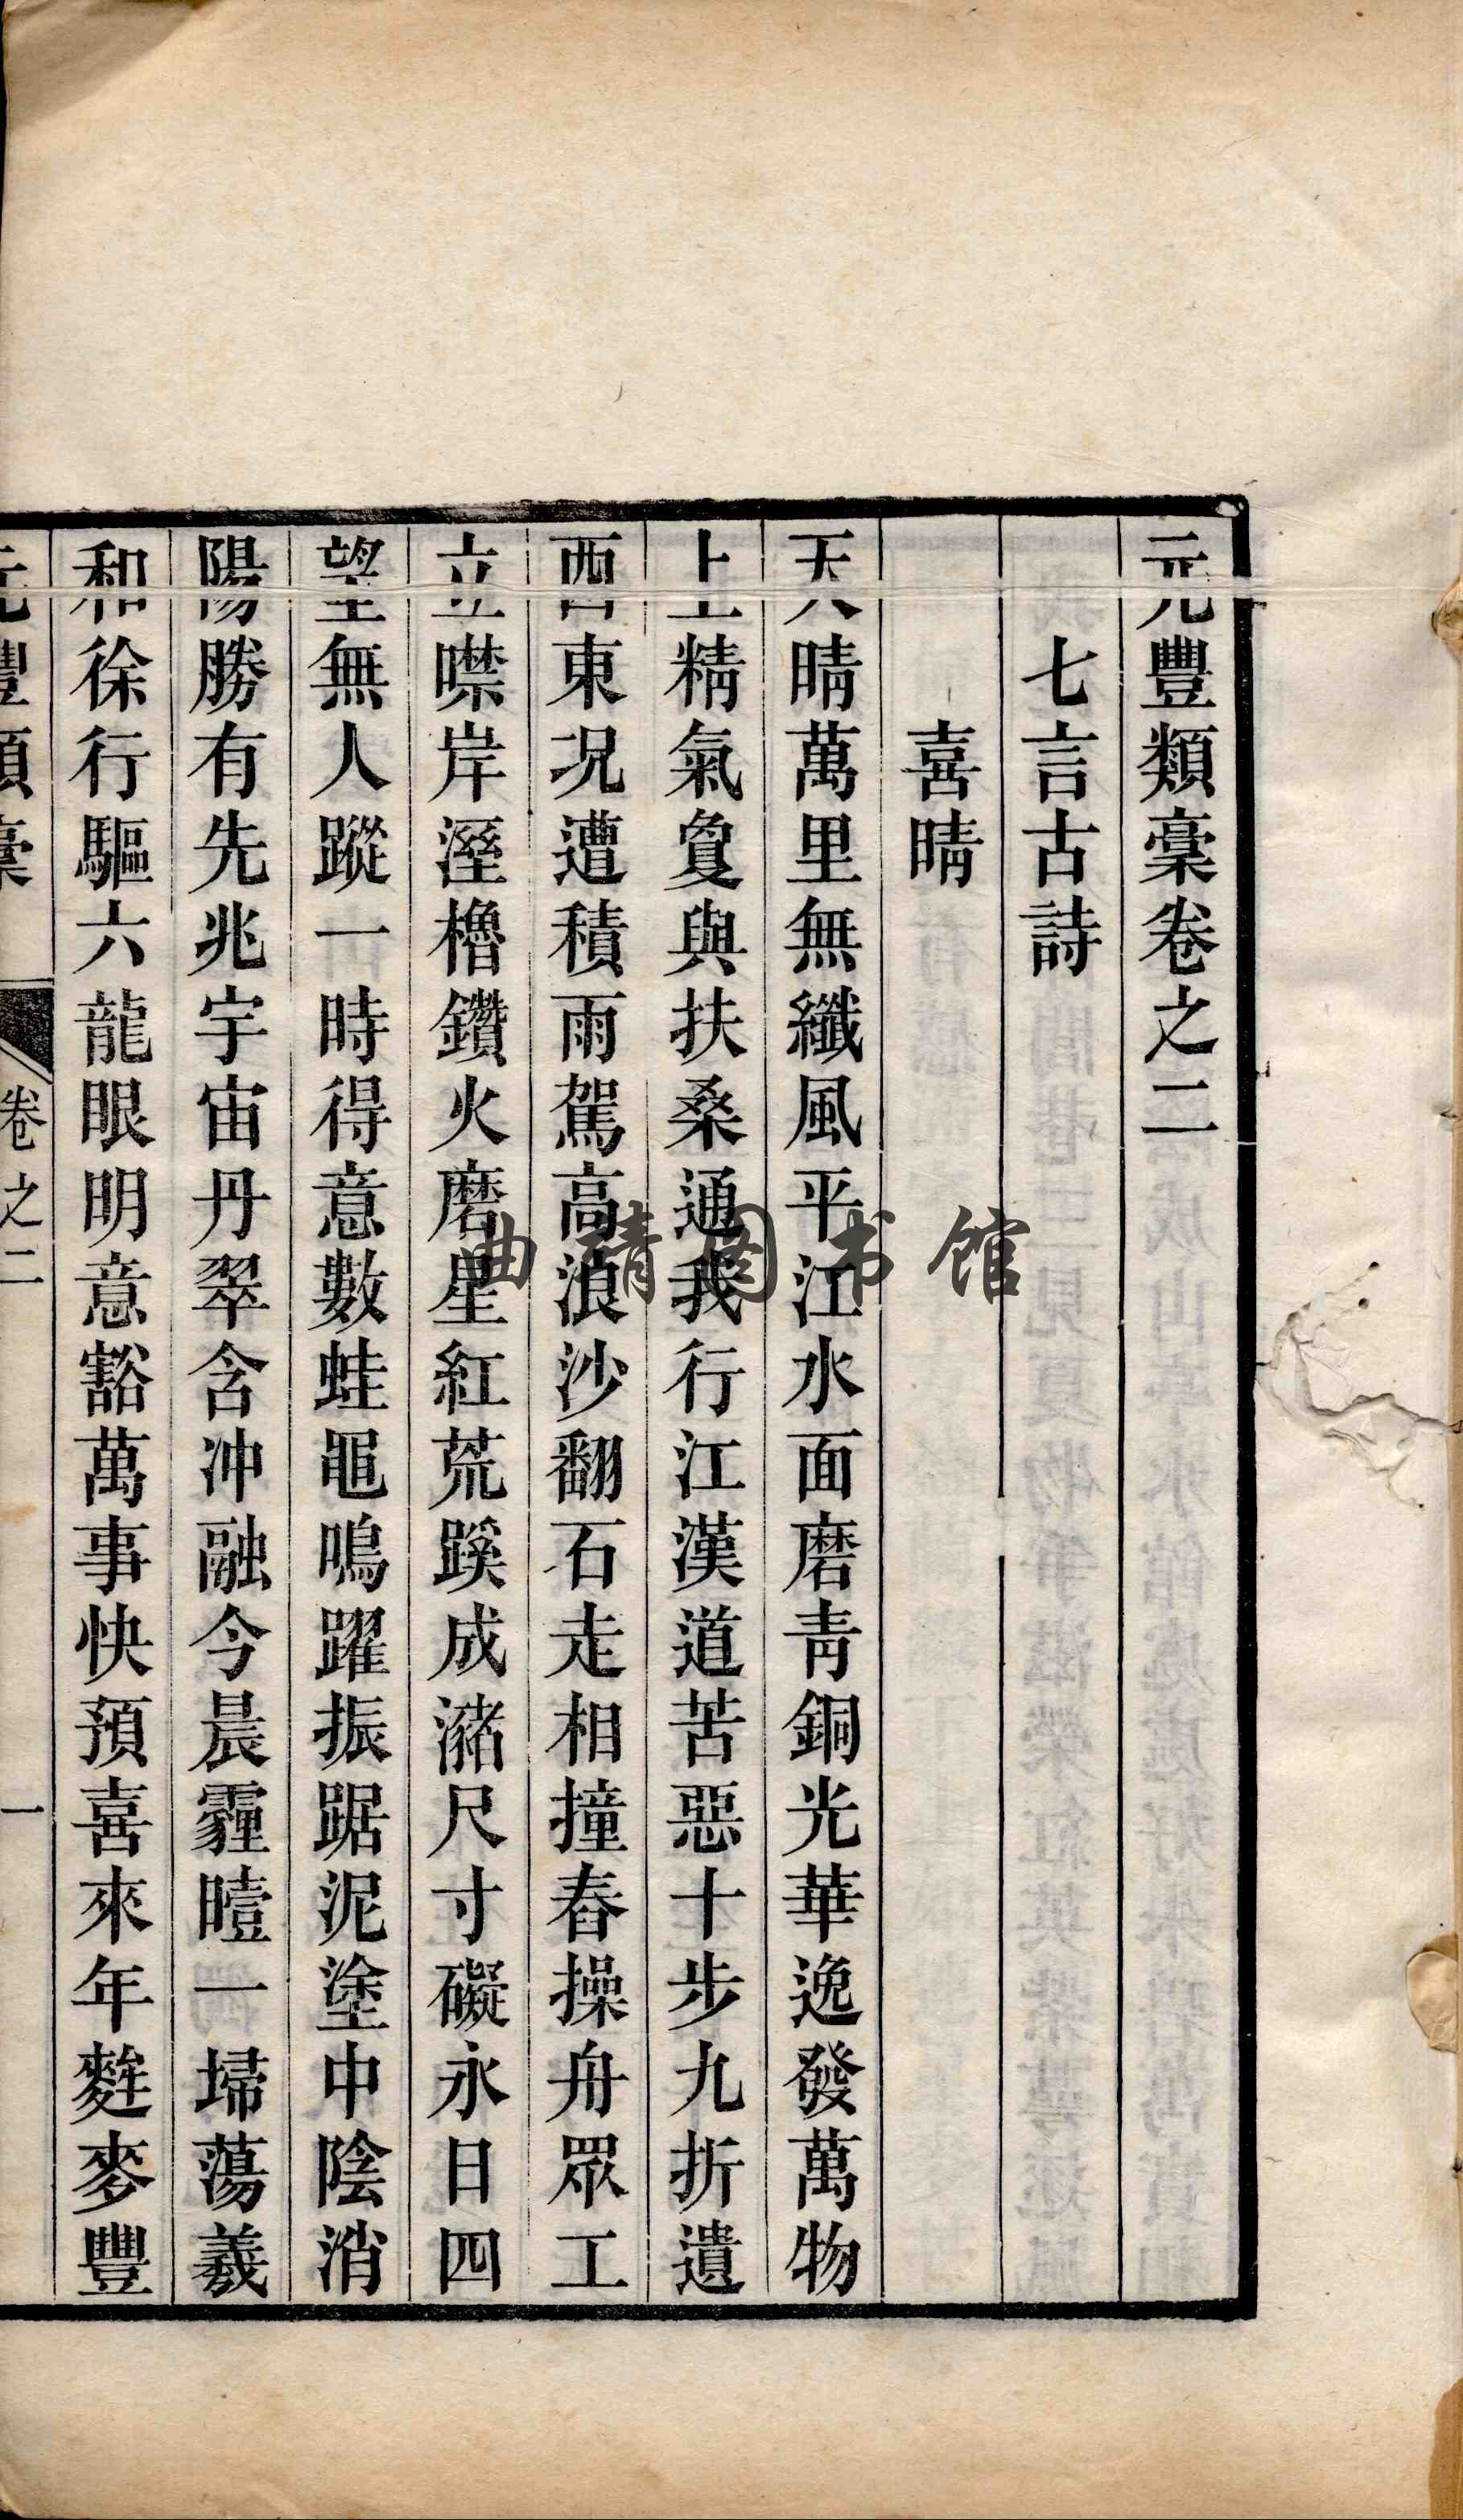 元豐類稾卷之二
七言古詩
喜晴
天晴萬里無纖風平江水面磨青銅光華逸發萬物
上精氣夐與扶桑通我行江漢道苦惡十步九折遺
西東况遭積雨駕高浪沙翻石走相撞舂操舟眾工
立噤岸溼櫓鑽火磨星紅荒蹊成瀦尺寸礙永日四
望無人蹤一時得意數蛙黽鳴躍振踞泥塗中陰消
陽勝有先兆宇宙丹翠含冲融今晨霾曀一埽蕩羲
和徐行驅六龍眼明意豁萬事快預喜來年麰麥豐
元豐類稾
卷之二
一
曲靖图书馆